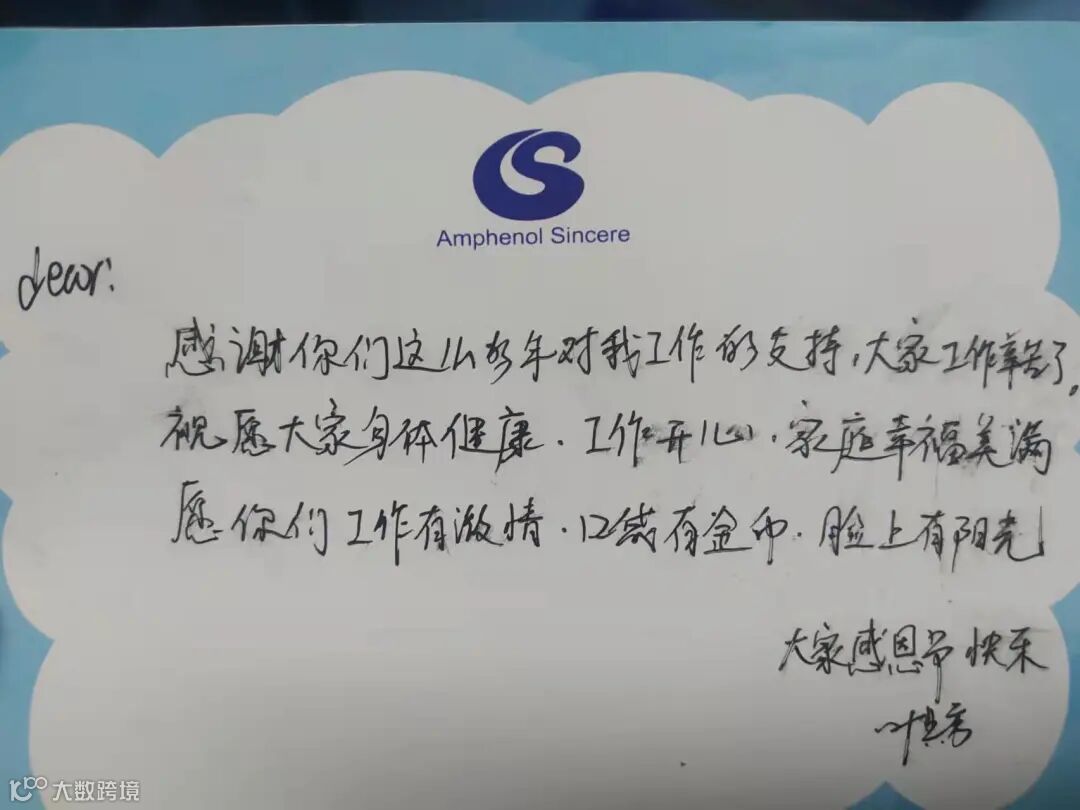 Amphenol Sincere
dear:
感谢你们这么多年对我工作的支持,大家工作辛苦了。
祝愿大家身体健康、工作开心、家庭幸福美满
愿你们工作有激情、口袋有金币、脸上有阳光!
大家感恩节快乐
叶
大数跨境